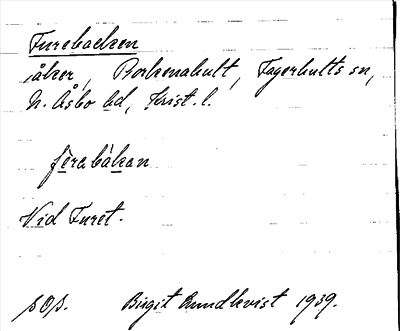 Furebacken
åker, Borkenahult, Fagerhults sn,
N. Åsbo hd, Krist. l.
fùrabákan
Vid Furet.
pOp. Birgit Rundkvist 1939.